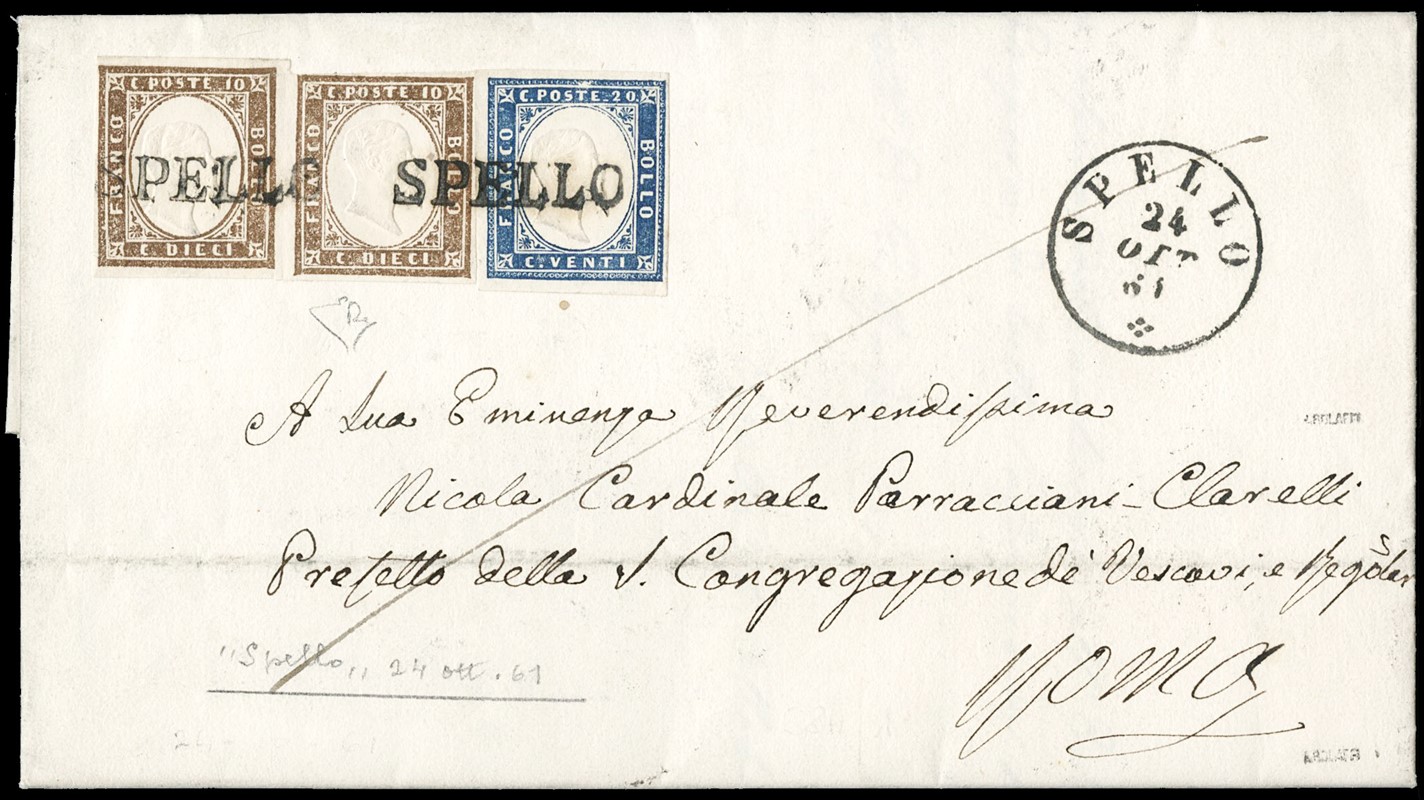 C. POSTE 10
FRANCO
BOLLO
C. DIECI
C. POSTE 10
FRANCO
BOLLO
C. DIECI
C. POSTE 20
FRANCO
BOLLO
C. VENTI
SPELLO
SPELLO
SPELLO
24
OTT
61
A Sua Eminenza Reverendissima
Nicola Cardinale Parracciani-Clarelli
Prefetto della S. Congregazione de' Vescovi, e Regolar
Roma
"Spello" 24 ott. 61